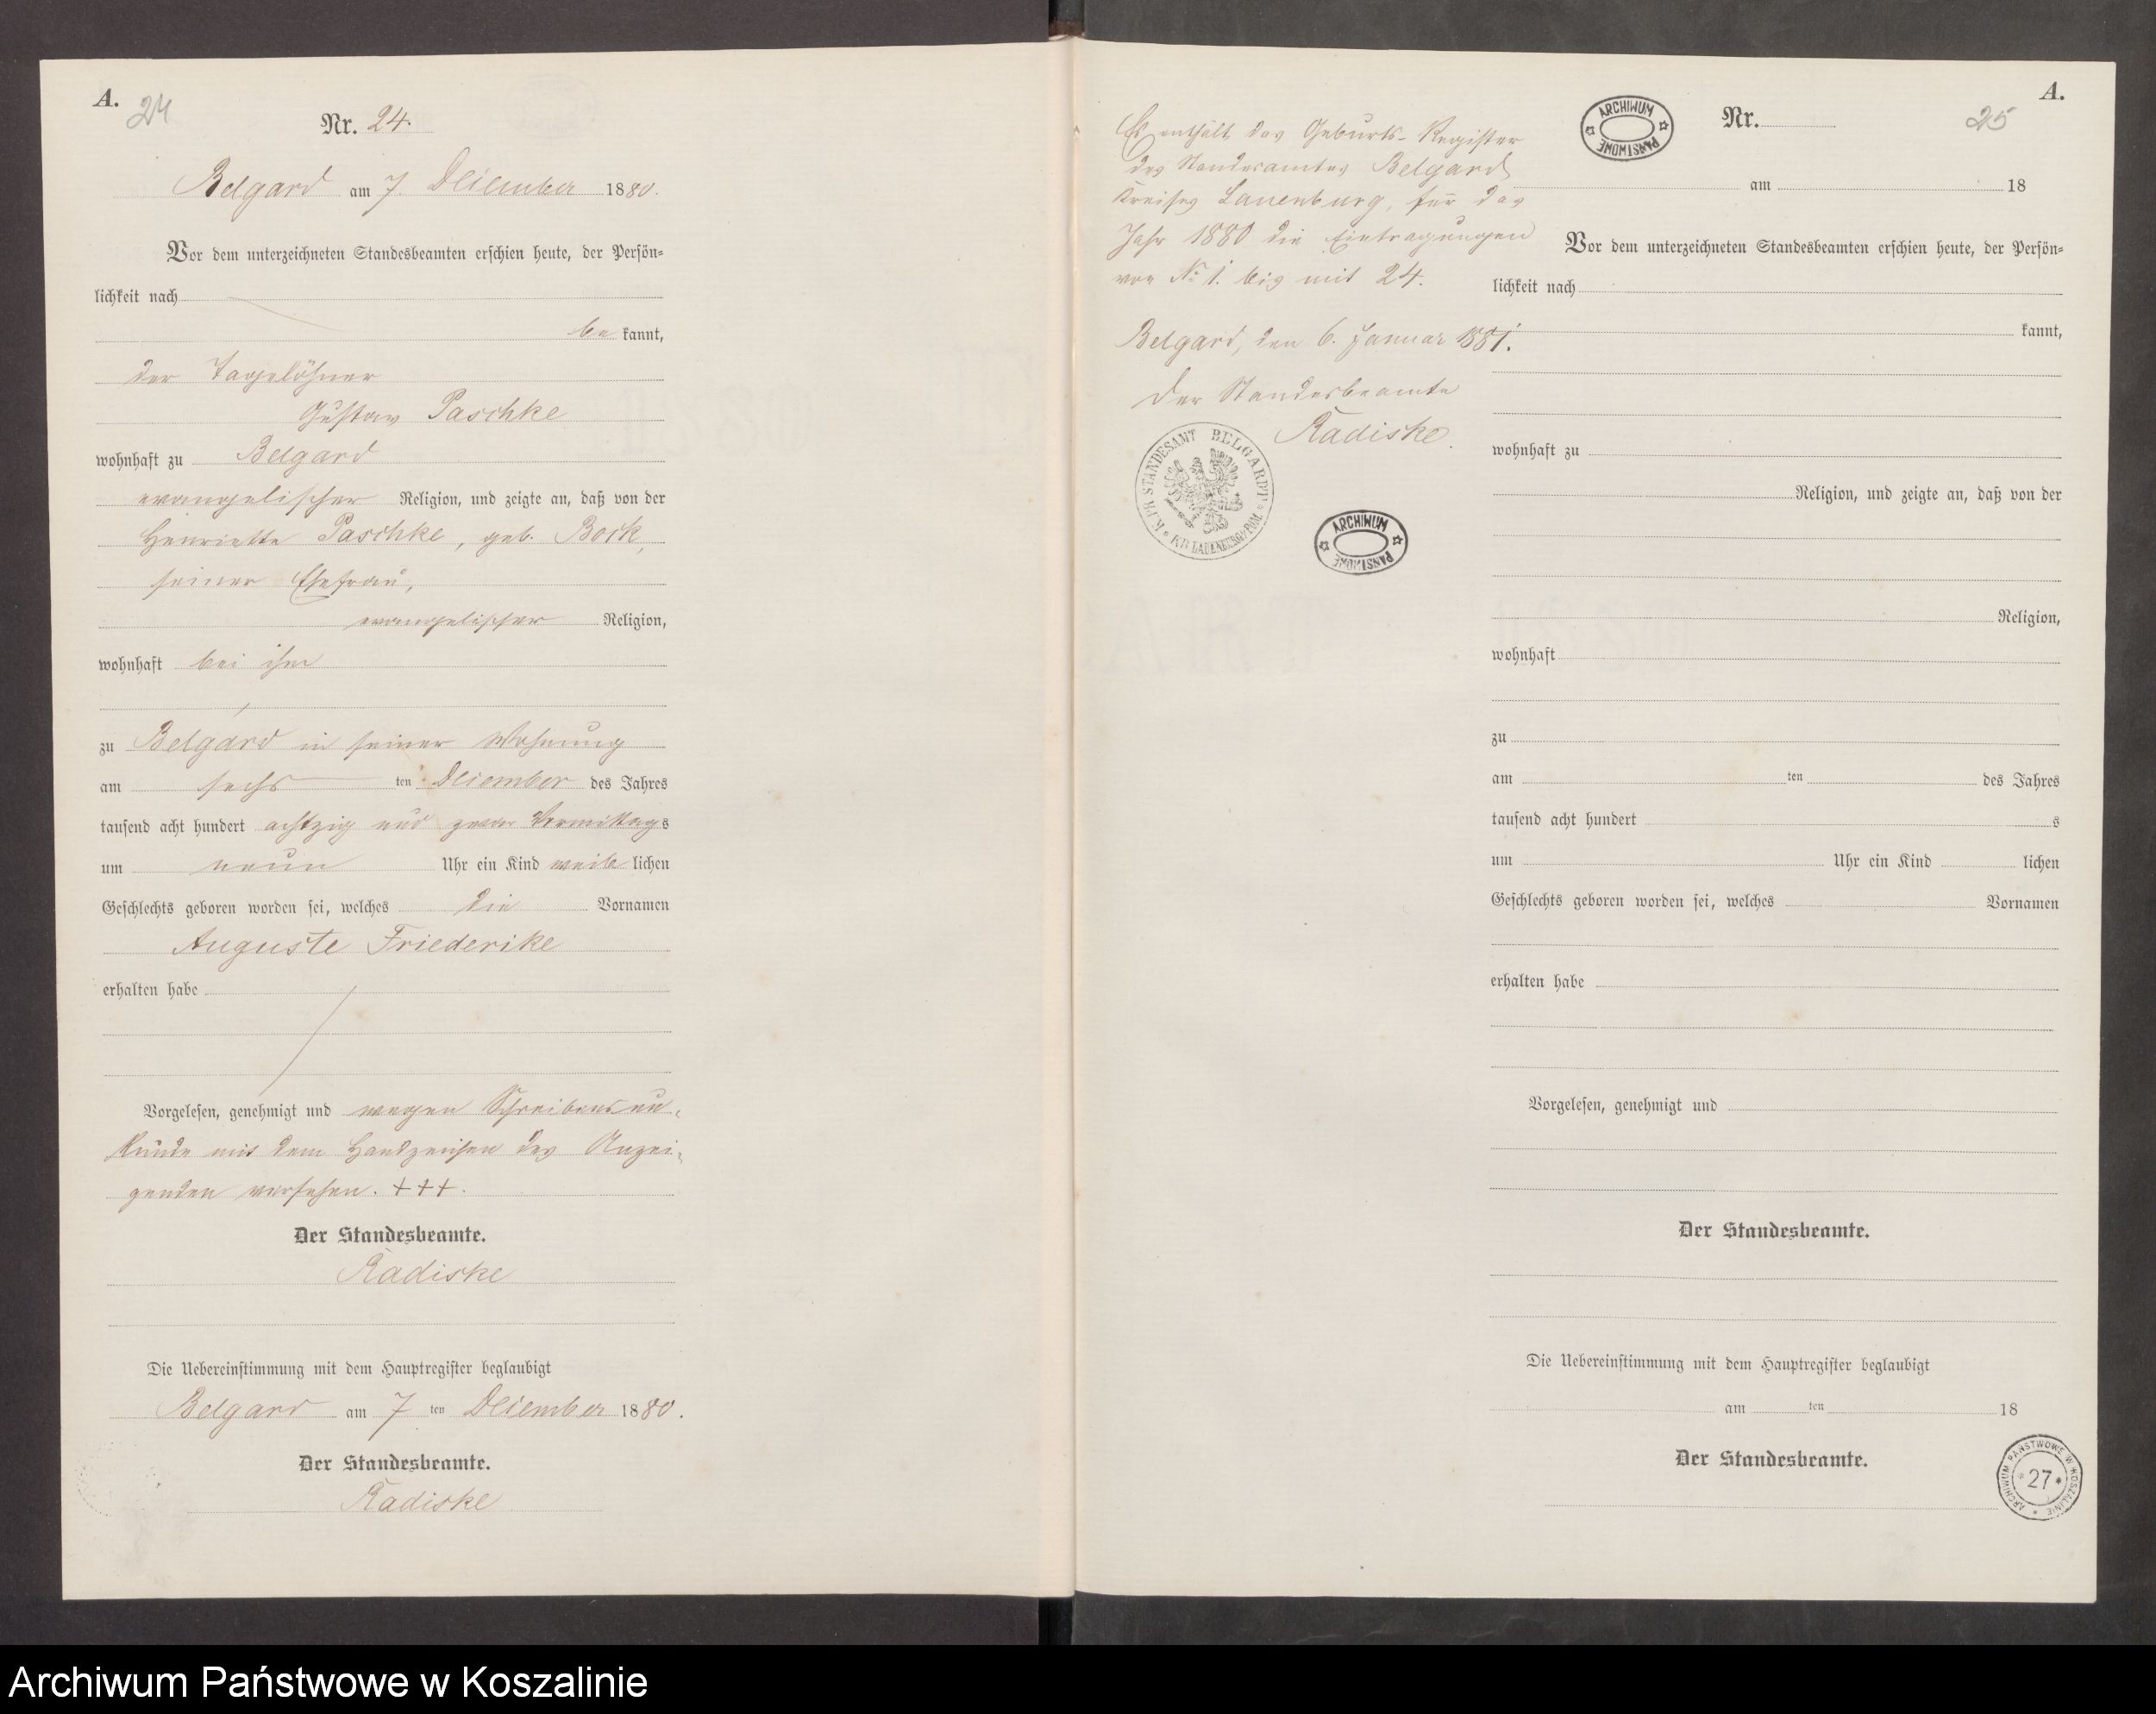 A.
24
Nr. 24
Belgard am 7. Dezember 1880.
Vor dem unterzeichneten Standesbeamten erschien heute, der Persön-
lichkeit nach
be kannt,
der Tagelöhner
Gustav Paschke
wohnhaft zu Belgard
evangelischer Religion, und zeigte an, daß von der
Henriette Paschke, geb. Bock,
seiner Ehefrau,
evangelischer Religion,
wohnhaft bei ihm
zu Belgard in seiner Wohnung
am sechs ten Dezember des Jahres
tausend acht hundert achtzig und zwar Vormittags
um neun Uhr ein Kind weib lichen
Geschlechts geboren worden sei, welches die Vornamen
Auguste Friederike
erhalten habe
Vorgelesen, genehmigt und wegen Schreibensun-
kunde mit dem Handzeichen des Anzei-
genden versehen. +++.
Der Standesbeamte.
Radiske
Die Uebereinstimmung mit dem Hauptregister beglaubigt
Belgard am 7 ten Dezember 1880.
Der Standesbeamte.
Radiske
Es enthält das Geburts-Register
des Standesamtes Belgard
Kreises Lauenburg, für das
Jahr 1880 die Eintragungen
von No 1. bis mit 24.
Belgard, den 6. Januar 1881.
Der Standesbeamte
Radiske.
K. PR STANDESAMT BELGARD
KR LAUENBURG POM.
ARCHIWUM PAŃSTWOWE
ARCHIWUM PAŃSTWOWE
A.
25
Nr.
am 18
Vor dem unterzeichneten Standesbeamten erschien heute, der Persön-
lichkeit nach
kannt,
wohnhaft zu
Religion, und zeigte an, daß von der
Religion,
wohnhaft
zu
am ten des Jahres
tausend acht hundert s
um Uhr ein Kind lichen
Geschlechts geboren worden sei, welches Vornamen
erhalten habe
Vorgelesen, genehmigt und
Der Standesbeamte.
Die Uebereinstimmung mit dem Hauptregister beglaubigt
am ten 18
Der Standesbeamte.
ARCHIWUM PAŃSTWOWE W KOSZALINIE
27
Archiwum Państwowe w Koszalinie